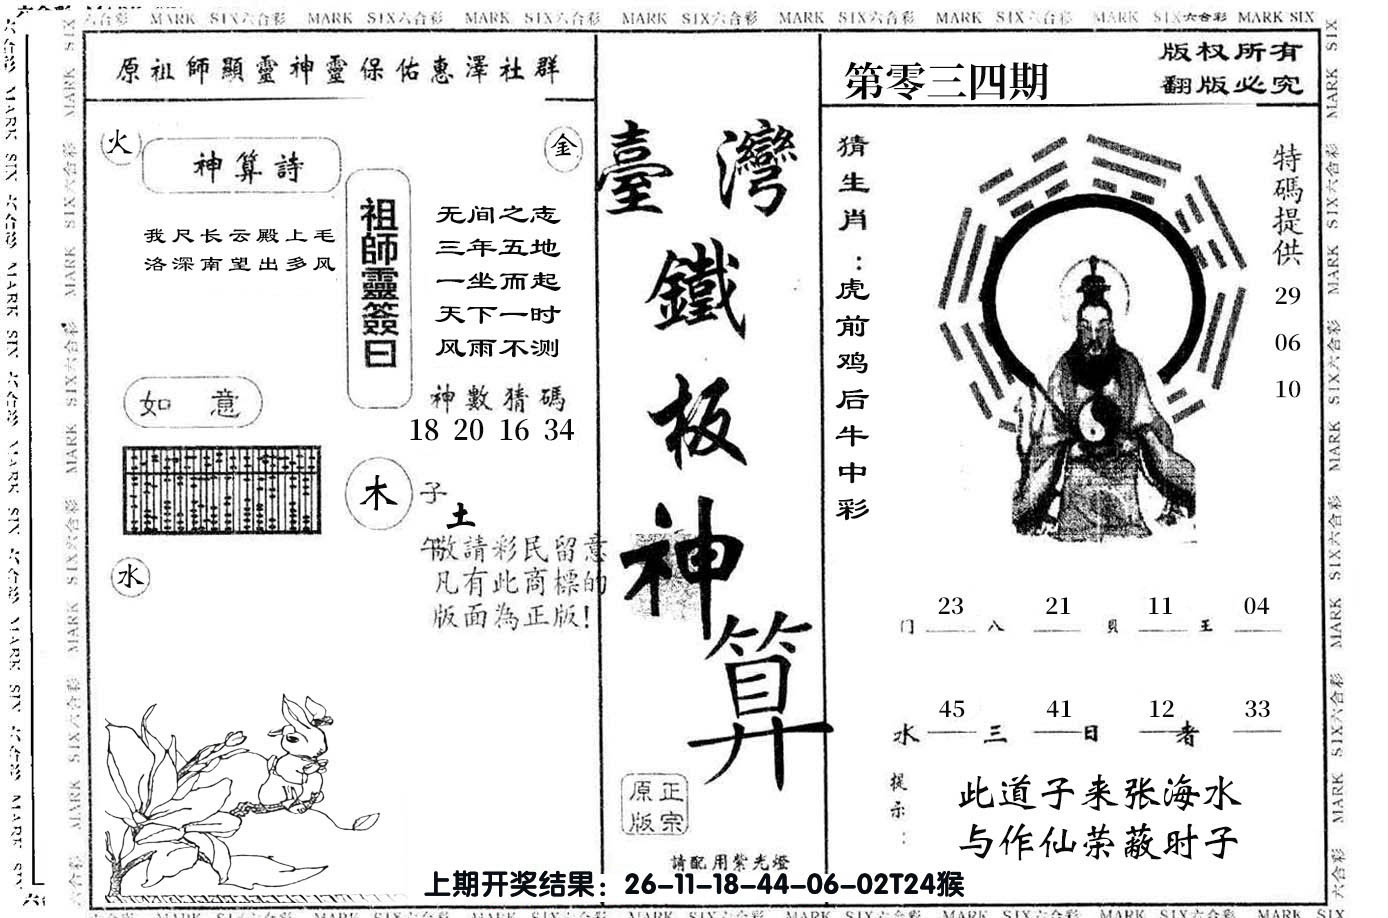 原祖師顯靈神靈保佑惠澤社群
火
金
神算詩
我尺长云殿上毛
洛深南望出多风
祖師靈簽曰
无间之志
三年五地
一坐而起
天下一时
风雨不测
神數猜碼
18 20 16 34
如意
木
子
土
午
敬請彩民留意
凡有此商標的
版面為正版!
水
臺灣
鐵
板
神
算
正宗
原版
請配用紫光燈
第零三四期
版权所有
翻版必究
猜生肖:虎前鸡后牛中彩
特碼提供
29
06
10
23 21 11 04
门 八 貝 王
45 41 12 33
水 三 日 者
提示:
此道子来张海水
与作仙荣蔽时子
上期开奖结果：26-11-18-44-06-02T24猴
MARK SIX六合彩 MARK SIX六合彩 MARK SIX六合彩 MARK SIX六合彩 MARK SIX六合彩 MARK SIX六合彩 MARK SIX六合彩 MARK SIX